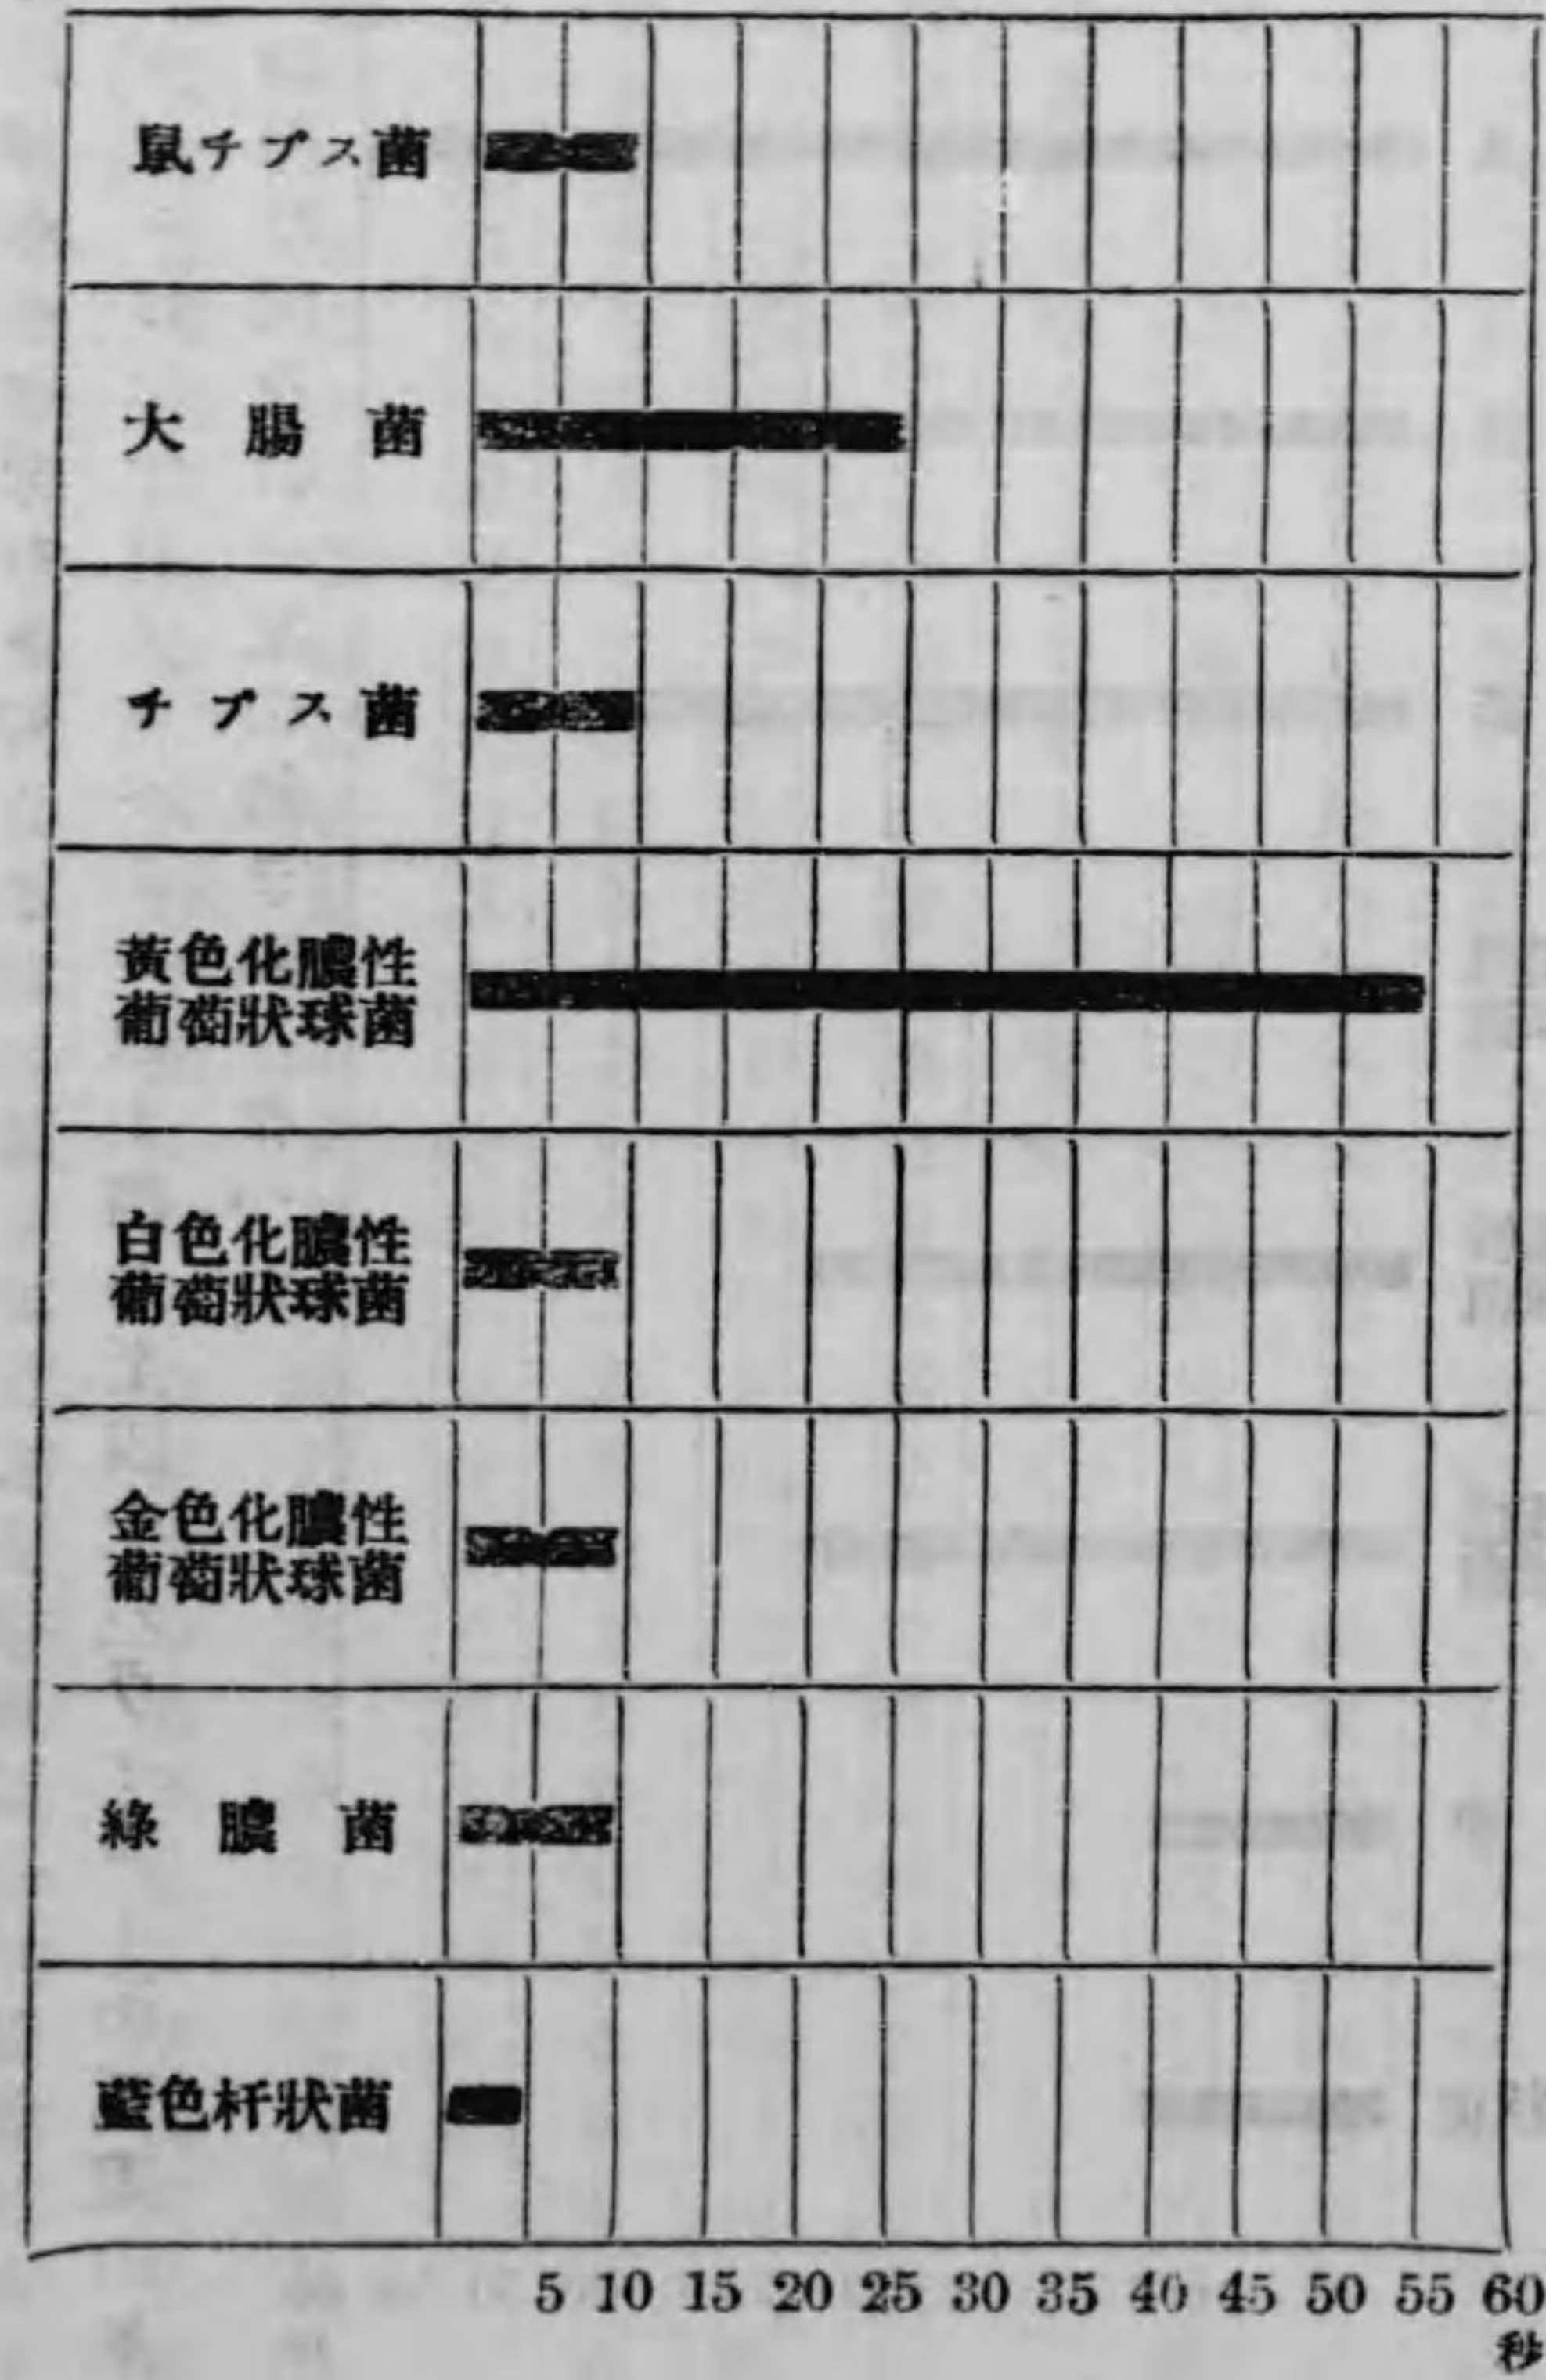 鼠チプス菌
大腸菌
チプス菌
黃色化膿性
葡萄狀球菌
白色化膿性
葡萄狀球菌
金色化膿性
葡萄狀球菌
綠膿菌
藍色杆狀菌
5 10 15 20 25 30 35 40 45 50 55 60
秒